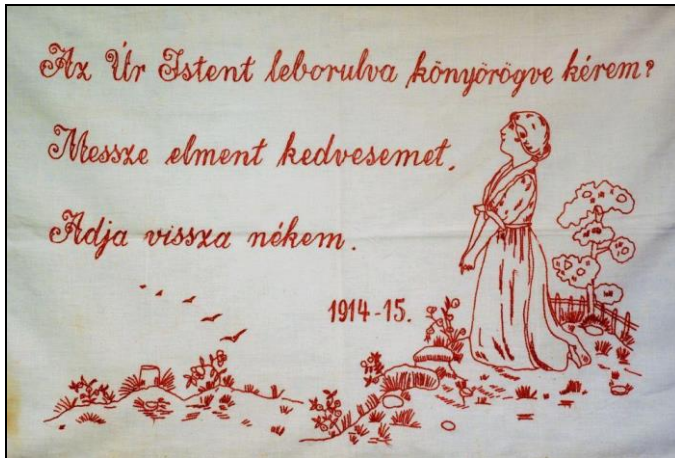 Az Úr Istent leborulva könyörögve kérem?
Messze elment kedvesemet,
Adja vissza nékem.
1914-15.